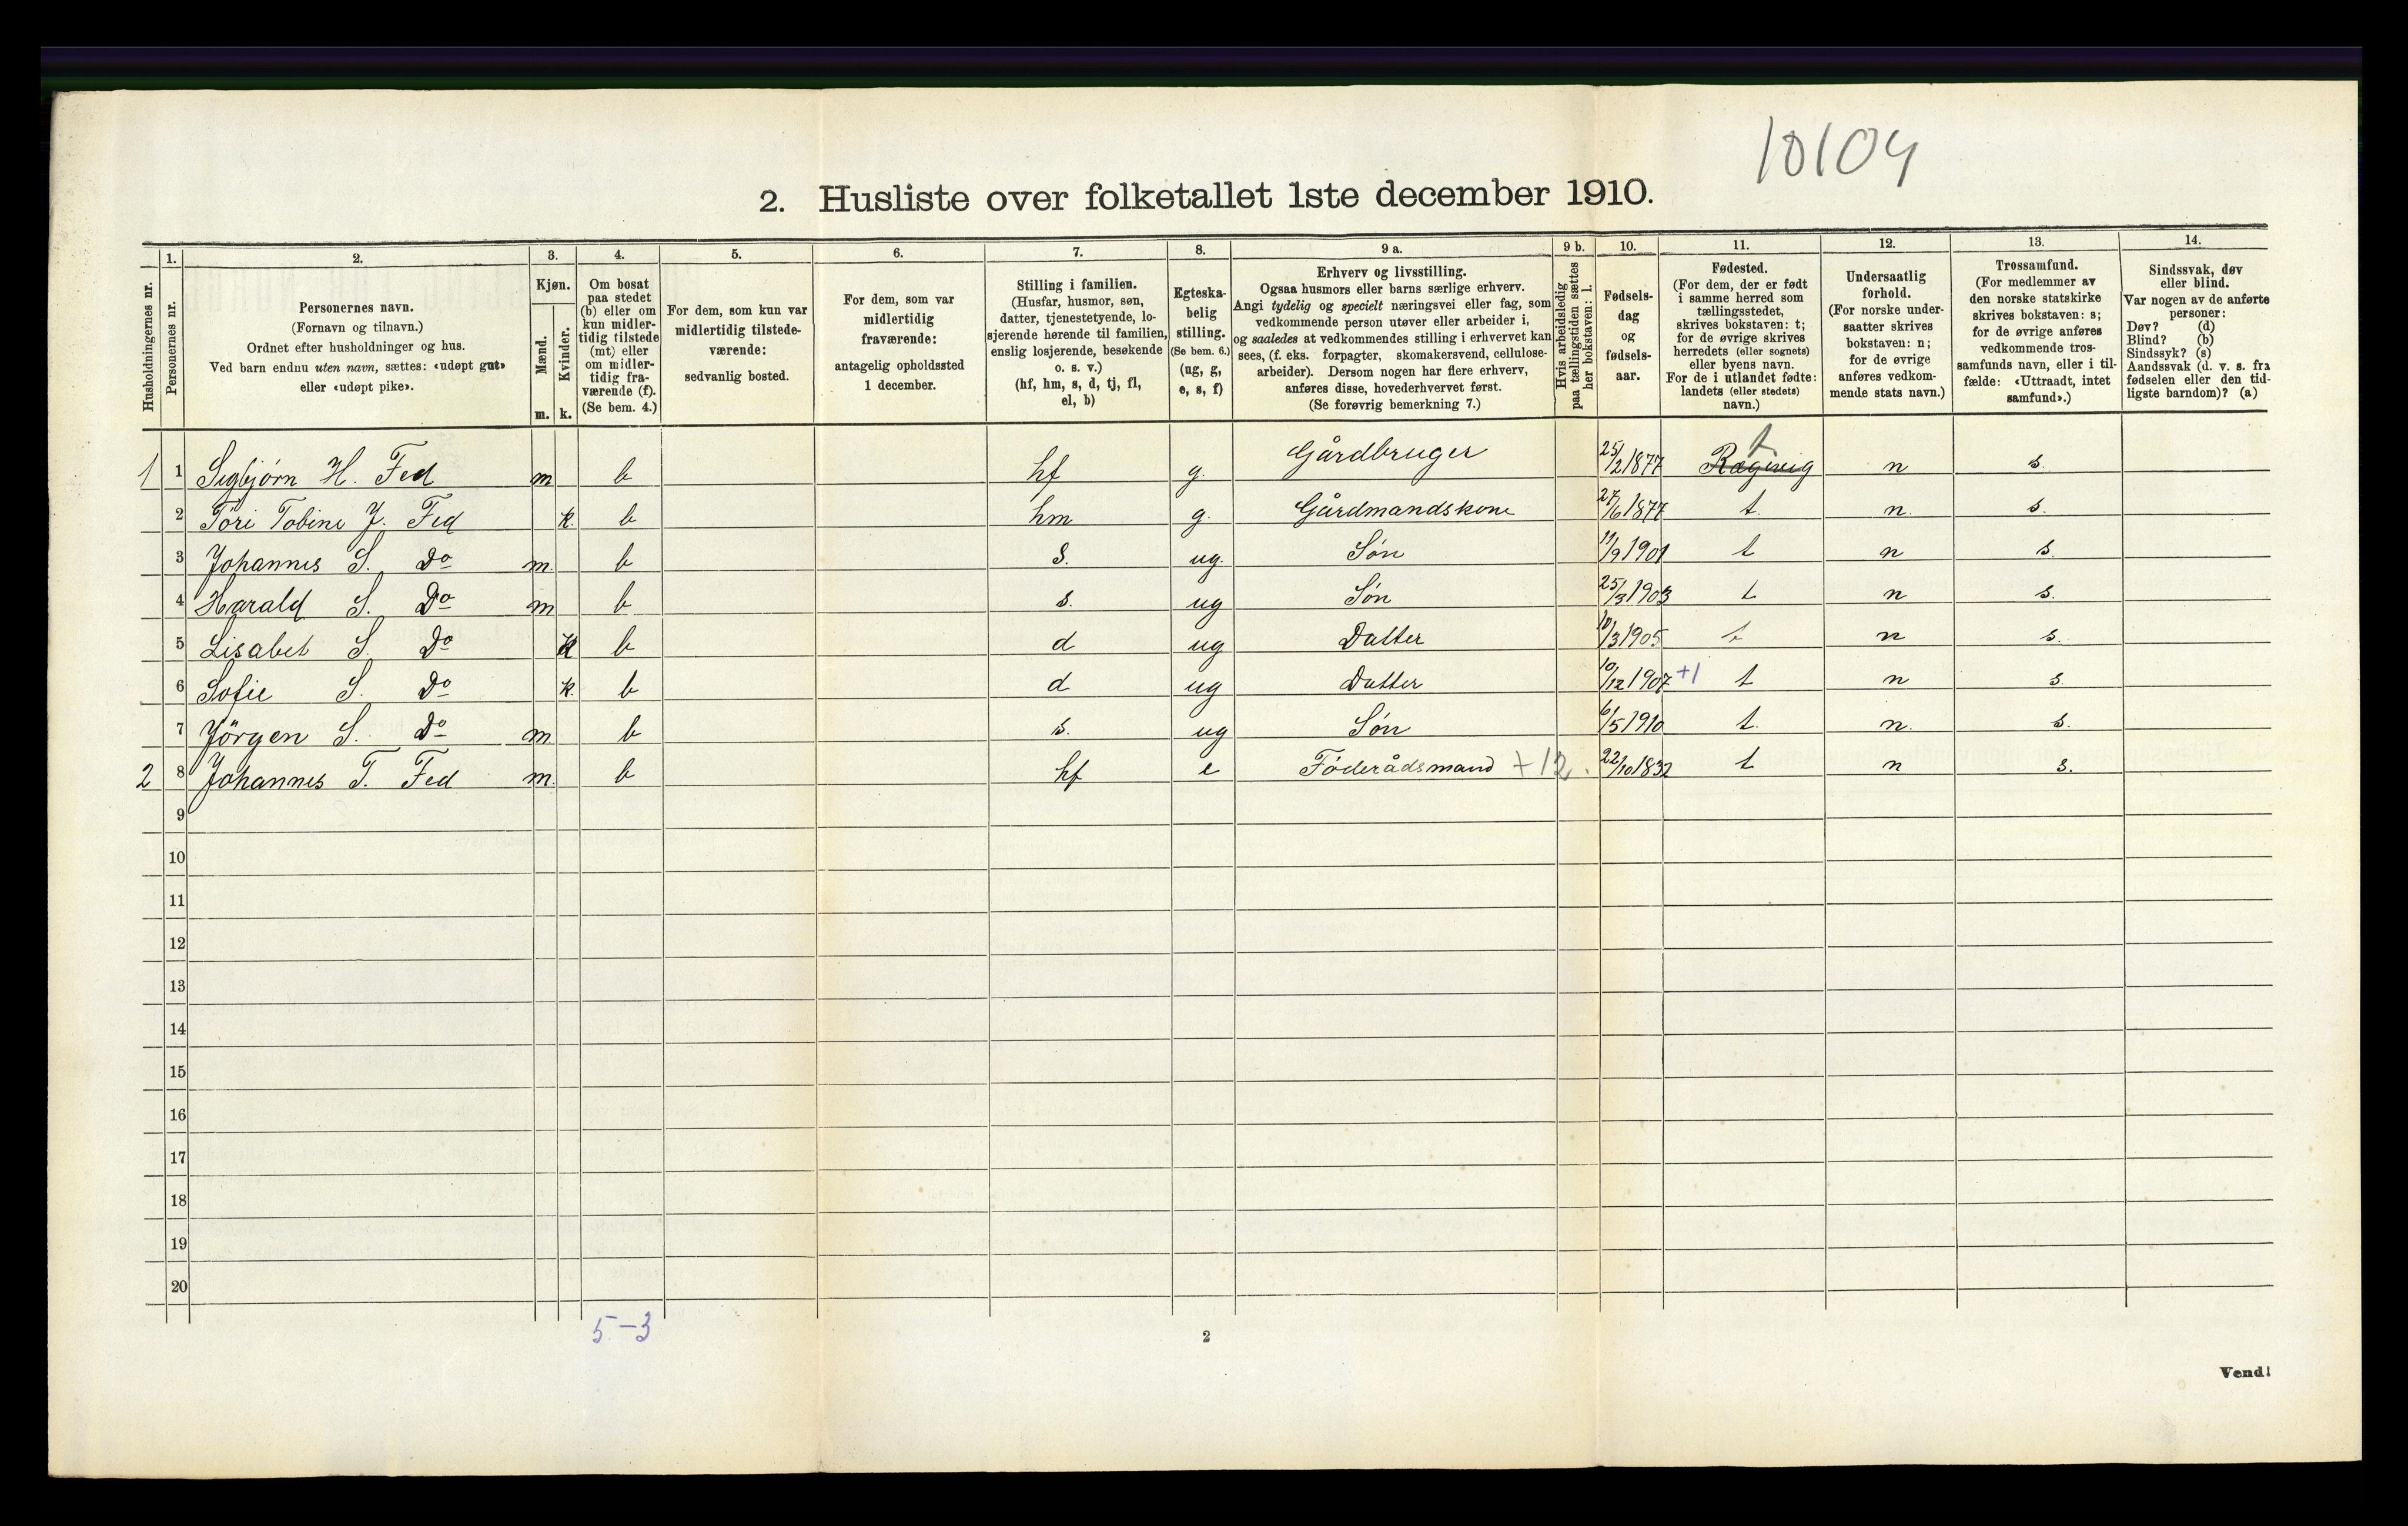 10104
2. Husliste over folketallet 1ste december 1910.
Husholdningernes nr.
1.
Personernes nr.
2.
Personernes navn.
(Fornavn og tilnavn.)
Ordnet efter husholdninger og hus.
Ved barn endnu uten navn, sættes: «udøpt gut»
eller «udøpt pike».
3.
Kjøn.
Mænd.
Kvinder.
m. k.
4.
Om bosat
paa stedet
(b) eller om
kun midler-
tidig tilstede
(mt) eller
om midler-
tidig fra-
værende (f).
(Se bem. 4.)
5.
For dem, som kun var
midlertidig tilstede-
værende:
sedvanlig bosted.
6.
For dem, som var
midlertidig
fraværende:
antagelig opholdssted
1 december.
7.
Stilling i familien.
(Husfar, husmor, søn,
datter, tjenestetyende, lo-
sjerende hørende til familien,
enslig losjerende, besøkende
o. s. v.)
(hf, hm, s, d, tj, fl,
el, b)
8.
Egteska-
belig
stilling.
(Se bem. 6.)
(ug, g,
e, s, f)
9 a.
Erhverv og livsstilling.
Ogsaa husmors eller barns særlige erhverv.
Angi tydelig og specielt næringsvei eller fag, som
vedkommende person utøver eller arbeider i,
og saaledes at vedkommendes stilling i erhvervet kan
sees, (f. eks. forpagter, skomakersvend, cellulose-
arbeider). Dersom nogen har flere erhverv,
anføres disse, hovederhvervet først.
(Se forøvrig bemerkning 7.)
9 b.
Hvis arbeidsledig
paa tællingstiden sættes
her bokstaven: l.
10.
Fødsels-
dag
og
fødsels-
aar.
11.
Fødested.
(For dem, der er født
i samme herred som
tællingsstedet,
skrives bokstaven: t;
for de øvrige skrives
herredets (eller sognets)
eller byens navn.
For de i utlandet fødte:
landets (eller stedets)
navn.)
12.
Undersaatlig
forhold.
(For norske under-
saatter skrives
bokstaven: n;
for de øvrige
anføres vedkom-
mende stats navn.)
13.
Trossamfund.
(For medlemmer av
den norske statskirke
skrives bokstaven: s;
for de øvrige anføres
vedkommende tros-
samfunds navn, eller i til-
fælde: «Uttraadt, intet
samfund».)
14.
Sindssvak, døv
eller blind.
Var nogen av de anførte
personer:
Døv? (d)
Blind? (b)
Sindssyk? (s)
Aandssvak (d. v. s. fra
fødselen eller den tid-
ligste barndom)? (a)
1 1 Sigbjørn H. Fed m b hf g. Gårdbruger 25/2 1877 t n s.
2 Töri Tobine J. Fed k b hm g. Gårdmandskone 27/6 1877 t. n. s.
3 Johannes S. Do m. b s. ug. Søn 11/9 1901 t n s.
4 Harald S. Do m b s. ug Søn 25/3 1903 t n s.
5 Lisabet S. Do k b d ug Datter 10/3 1905 t n s.
6 Sofie S. Do k. b d ug Datter 10/12 1907 +1 t n s.
7 Jörgen S. Do m b s. ug Søn 6/5 1910 t. n. s.
2 8 Johannes T. Fed m. b hf e Föderådsmand +12. 22/10 1832 t n s.
9
10
11
12
13
14
15
16
17
18
19
20
5-3
2
Vend!